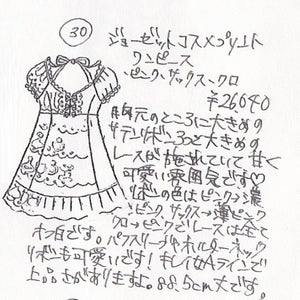 30
ジョーゼットコスメプリント
ワンピース
・ピンク、サックス、クロ
¥26040
胸元のところに大きめの
サテンリボンろっと大きめの
レースが施されていて甘く
可愛い雰囲気です♡
リボンの色はピンク→濃
いピンク、サックス→薄ピンク
クロ→ピンクでレースは全て
オフ白です。パフスリーブ
ホルターネック
リボンも可愛いです!キレイなAラインで
上品さがありますよ。88.5cm丈です。